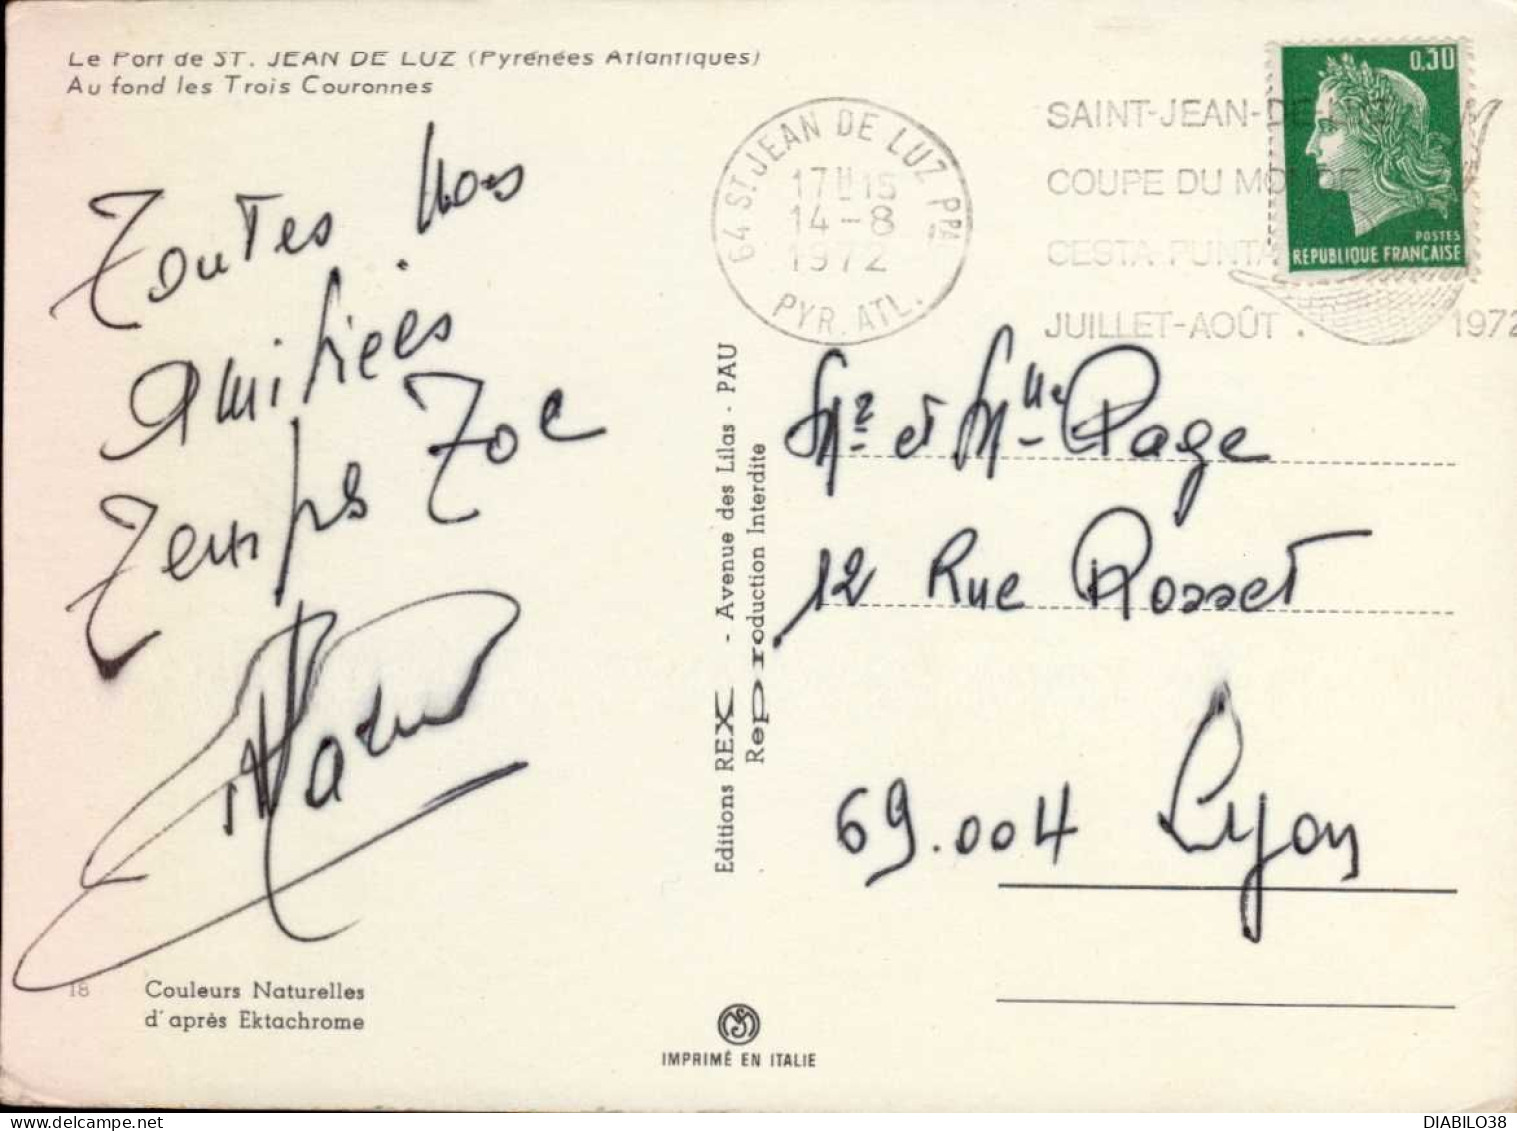 Le Port de ST. JEAN DE LUZ (Pyrénées Atlantiques)
Au fond les Trois Couronnes
Toutes nos
amitiées
Temps
18
Couleurs Naturelles
d'après Ektachrome
Editions REX - Avenue des Lilas - PAU
Reproduction Interdite
IMPRIMÉ EN ITALIE
64 ST JEAN DE LUZ PPAL
17H15
14-8
1972
PYR. ATL.
SAINT-JEAN-DE-LUZ
COUPE DU MONDE
CESTA PUNTA
JUILLET-AOÛT 1972
0,30
POSTES
REPUBLIQUE FRANÇAISE
Mr et Mme Page
12 Rue Rosset
69.004 Lyon
DIABILO38